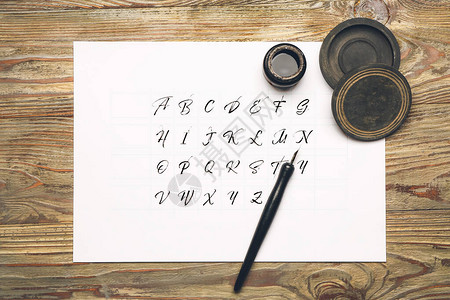 A B C D E F G
H I J K L M N
O P Q R S T Y
V W X Y Z